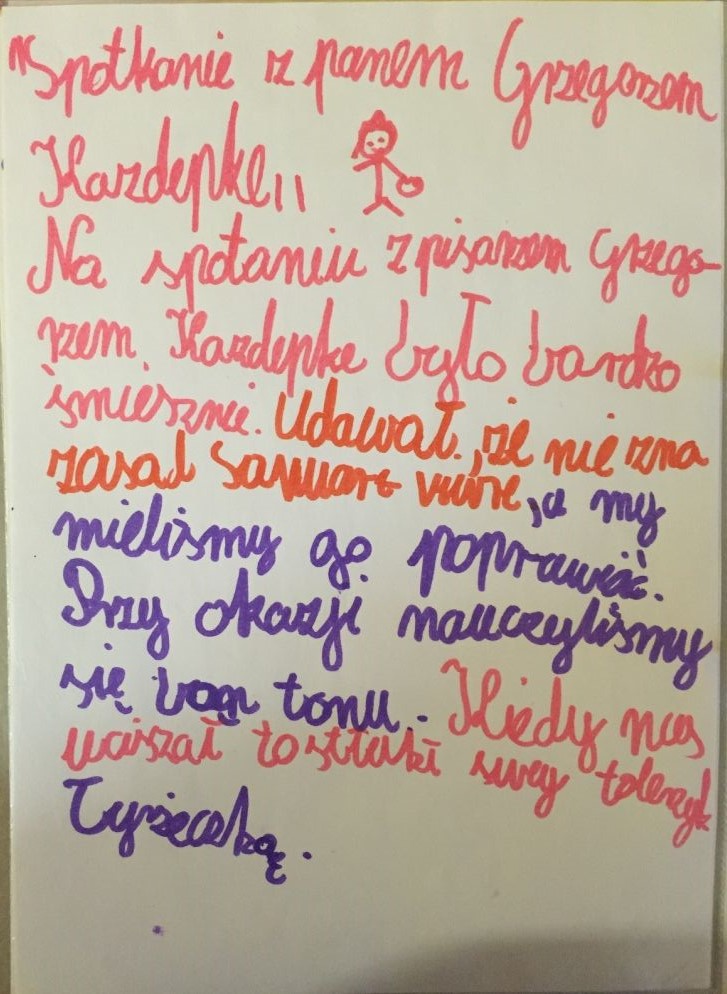 "Spotkanie z panem Grzegorzem
Kazdepke,,
Na spotaniu z pisarzem Grzego-
rzem Kazdepke było bardzo
śmiesznie. Udawał, że nie zna
zasad savuare vivre, a my
mieliśmy go poprawiać.
Przy okazji nauczyliśmy
się bon tonu. Kiedy nas
uciszał to stukł swój talerzyk
Łyżeczką.